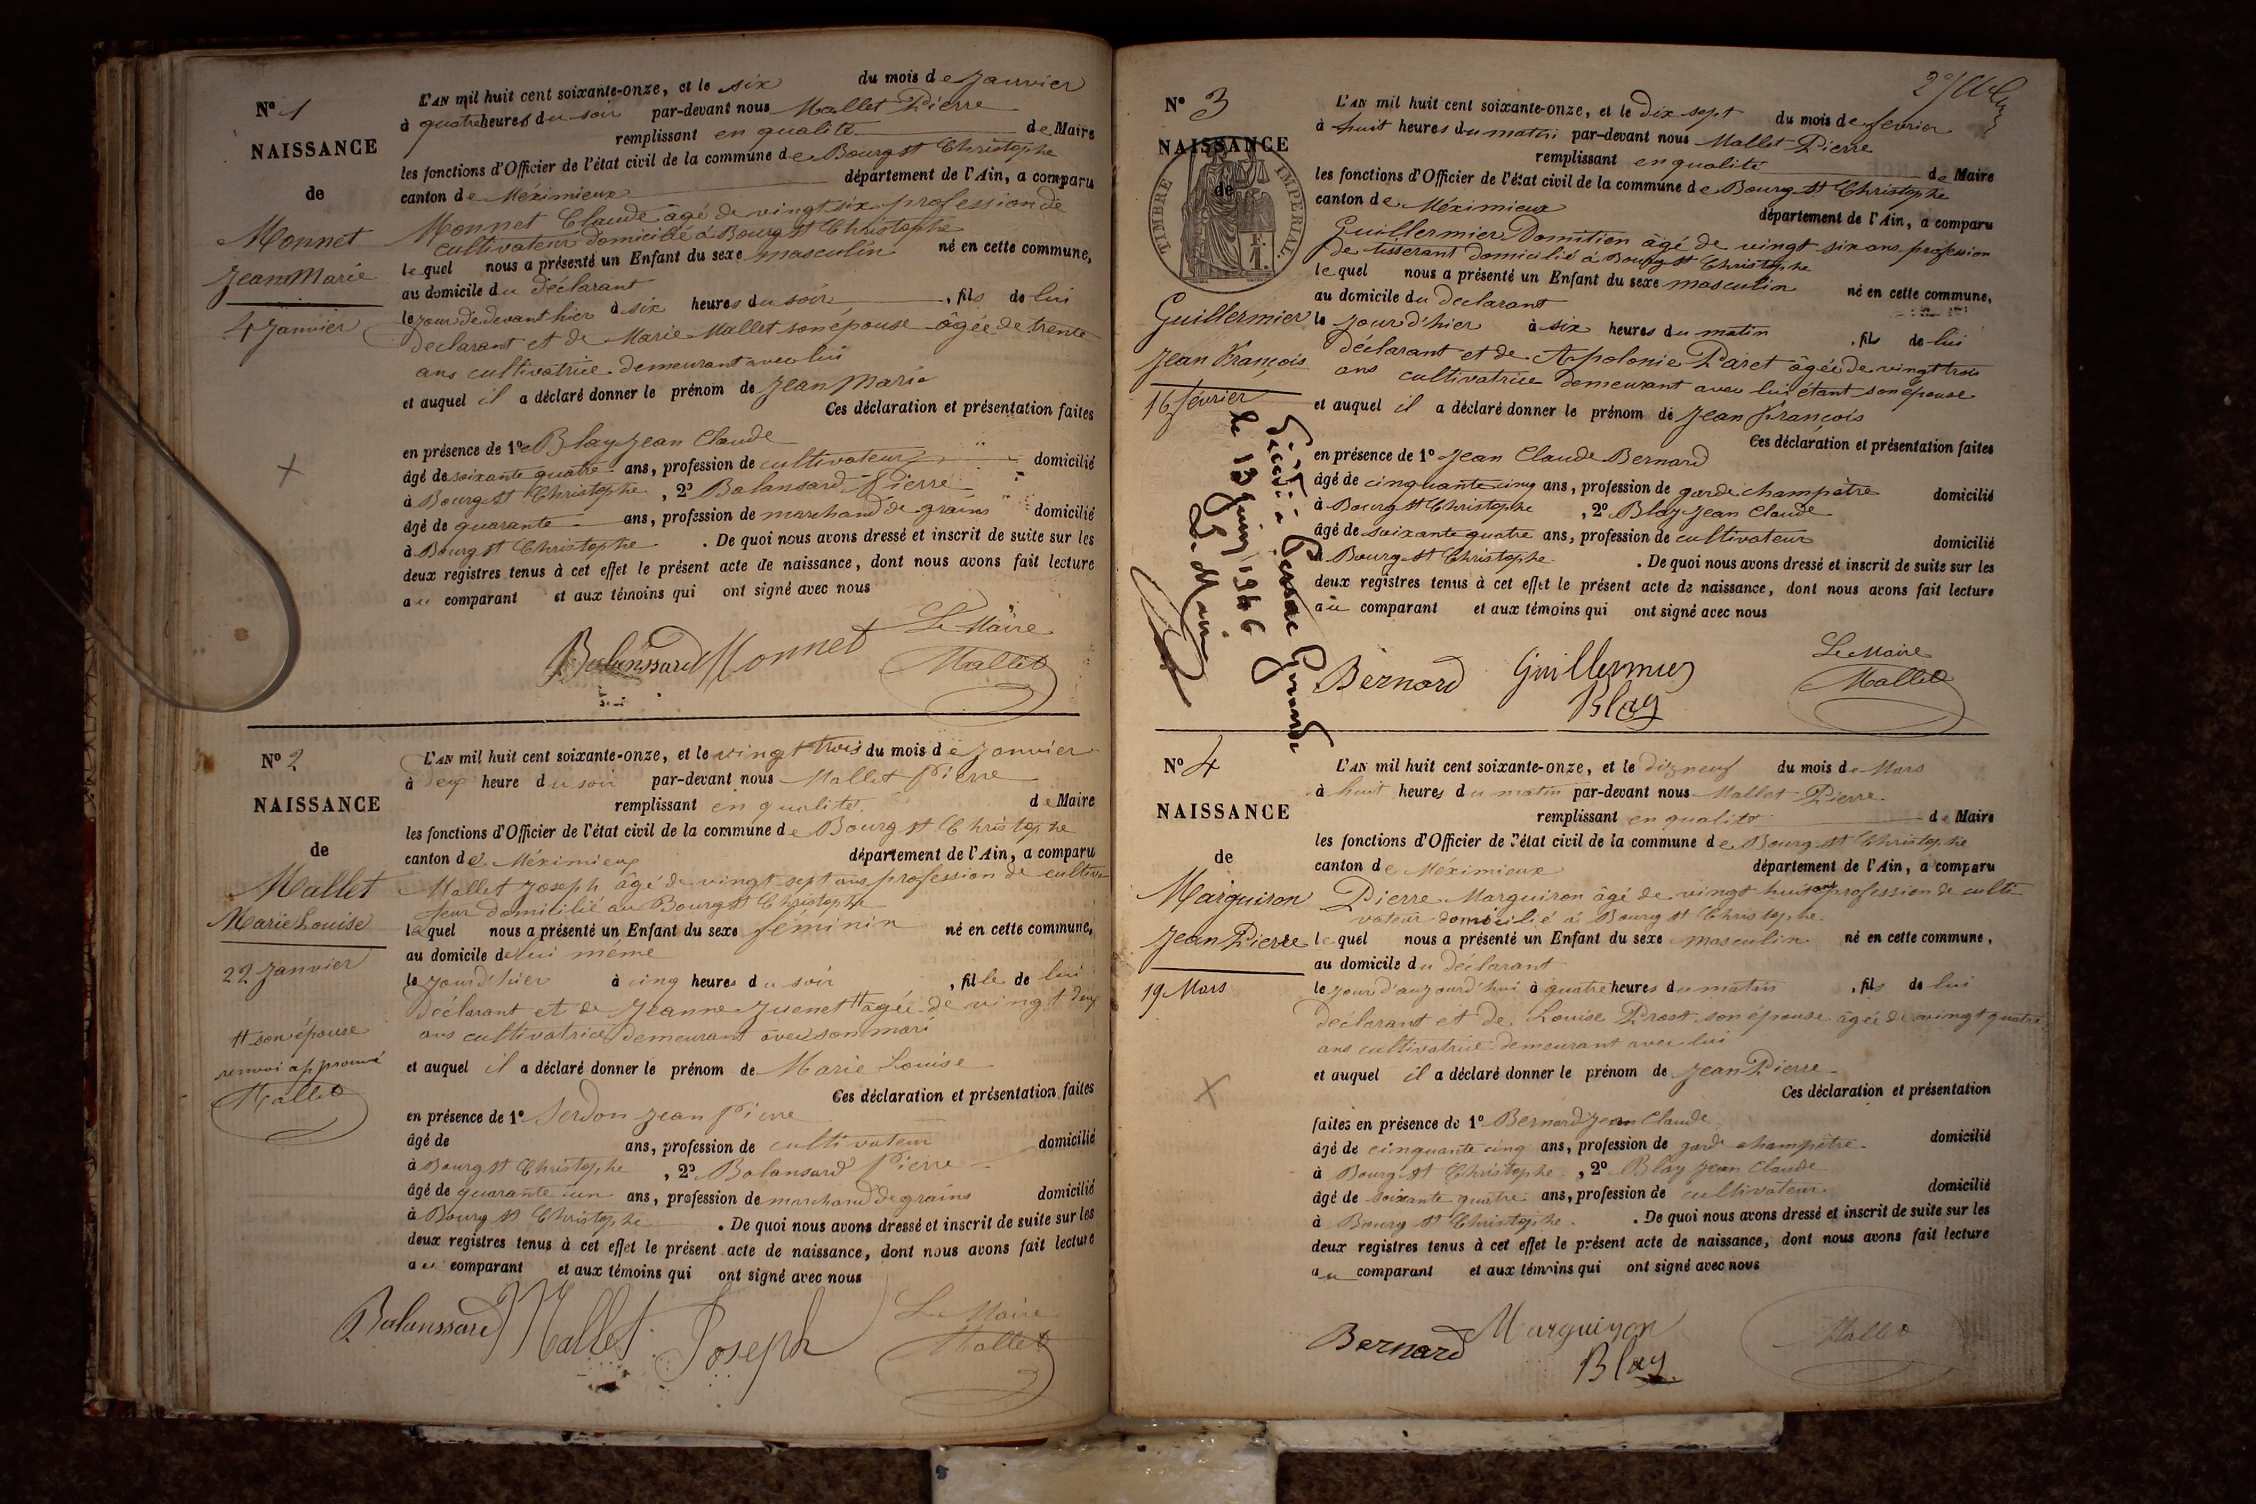 N° 1
NAISSANCE
de
Monnet
Jean Marie
4 Janvier
L'AN mil huit cent soixante-onze, et le six du mois de Janvier
à quatre heures du soir par-devant nous Mallet Pierre
remplissant en qualité de Maire
les fonctions d'Officier de l'état civil de la commune de Bourg St Christophe
canton de Méximieux département de l'Ain, a comparu
Monnet Claude âgé de vingt six profession de
cultivateur domicilié à Bourg St Christophe
lequel nous a présenté un Enfant du sexe masculin né en cette commune,
au domicile du déclarant
le jour de devant hier à six heures du soir, fils de lui
déclarant et de Marie Mallet son épouse âgée de trente
ans cultivatrice demeurant avec lui
et auquel il a déclaré donner le prénom de Jean Marie
Ces déclaration et présentation faites
en présence de 1° Blay Jean Claude
âgé de soixante quatre ans, profession de cultivateur domicilié
à Bourg St Christophe, 2° Balansard Pierre
âgé de quarante ans, profession de marchand de grains domicilié
à Bourg St Christophe. De quoi nous avons dressé et inscrit de suite sur les
deux registres tenus à cet effet le présent acte de naissance, dont nous avons fait lecture
au comparant et aux témoins qui ont signé avec nous
Le Maire
Balanssard Monnet Mallet
N° 2
NAISSANCE
de
Mallet
Marie Louise
22 Janvier
# son épouse
renvoi approuvé
Mallet
L'AN mil huit cent soixante-onze, et le vingt trois du mois de Janvier
à deux heure du soir par-devant nous Mallet Pierre
remplissant en qualité de Maire
les fonctions d'Officier de l'état civil de la commune de Bourg St Christophe
canton de Méximieux département de l'Ain, a comparu
Mallet Joseph âgé de vingt sept ans profession de cultiva
teur domicilié au Bourg St Christophe
lequel nous a présenté un Enfant du sexe féminin né en cette commune,
au domicile de lui même
le jour d'hier à cinq heures du soir, fille de lui
déclarant et de Jeanne Juenet # âgée de vingt deux
ans cultivatrice demeurant avec son mari
et auquel il a déclaré donner le prénom de Marie Louise
Ces déclaration et présentation faites
en présence de 1° Serdon Jean Pierre
âgé de ans, profession de cultivateur domicilié
à Bourg St Christophe, 2° Balansard Pierre
âgé de quarante un ans, profession de marchand de grains domicilié
à Bourg St Christophe. De quoi nous avons dressé et inscrit de suite sur les
deux registres tenus à cet effet le présent acte de naissance, dont nous avons fait lecture
au comparant et aux témoins qui ont signé avec nous
Le Maire
Balanssard Mallet Joseph Mallet
N° 3
NAISSANCE
de
TIMBRE IMPERIAL
Guillermier
Jean François
16 février
Décédé à Pessac Gironde
le 13 Juin 1946
Le Maire
L'AN mil huit cent soixante-onze, et le dix sept du mois de fevrier
à huit heures du matin par-devant nous Mallet Pierre
remplissant en qualité de Maire
les fonctions d'Officier de l'état civil de la commune de Bourg St Christophe
canton de Méximieux département de l'Ain, a comparu
Guillermier Domitien âgé de vingt six ans profession
de tisserant domicilié à Bourg St Christophe
lequel nous a présenté un Enfant du sexe masculin né en cette commune,
au domicile du déclarant
le jour d'hier à six heures du matin, fils de lui
déclarant et de Apolonie Paret âgée de vingt trois
ans cultivatrice demeurant avec lui étant son épouse
et auquel il a déclaré donner le prénom de Jean François
Ces déclaration et présentation faites
en présence de 1° Jean Claude Bernard
âgé de cinquante cinq ans, profession de garde champêtre domicilié
à Bourg St Christophe, 2° Blay Jean Claude
âgé de soixante quatre ans, profession de cultivateur domicilié
à Bourg St Christophe. De quoi nous avons dressé et inscrit de suite sur les
deux registres tenus à cet effet le présent acte de naissance, dont nous avons fait lecture
au comparant et aux témoins qui ont signé avec nous
Le Maire
Bernard Guillermier Mallet
Blay
N° 4
NAISSANCE
de
Marguiron
Jean Pierre
19 Mars
L'AN mil huit cent soixante-onze, et le dix neuf du mois de Mars
à huit heures du matin par-devant nous Mallet Pierre
remplissant en qualité de Maire
les fonctions d'Officier de l'état civil de la commune de Bourg St Christophe
canton de Méximieux département de l'Ain, a comparu
Pierre Marguiron âgé de vingt huit ans profession de culti
vateur domicilié à Bourg St Christophe
lequel nous a présenté un Enfant du sexe masculin né en cette commune,
au domicile du déclarant
le jour d'aujourd'hui à quatre heures du matin, fils de lui
déclarant et de Louise Prost son épouse âgée de vingt quatre
ans cultivatrice demeurant avec lui
et auquel il a déclaré donner le prénom de Jean Pierre
Ces déclaration et présentation
faites en présence de 1° Bernard Jean Claude
âgé de cinquante cinq ans, profession de garde champêtre domicilié
à Bourg St Christophe, 2° Blay Jean Claude
âgé de soixante quatre ans, profession de cultivateur domicilié
à Bourg St Christophe. De quoi nous avons dressé et inscrit de suite sur les
deux registres tenus à cet effet le présent acte de naissance, dont nous avons fait lecture
au comparant et aux témoins qui ont signé avec nous
Bernard Marguiron Mallet
Blay